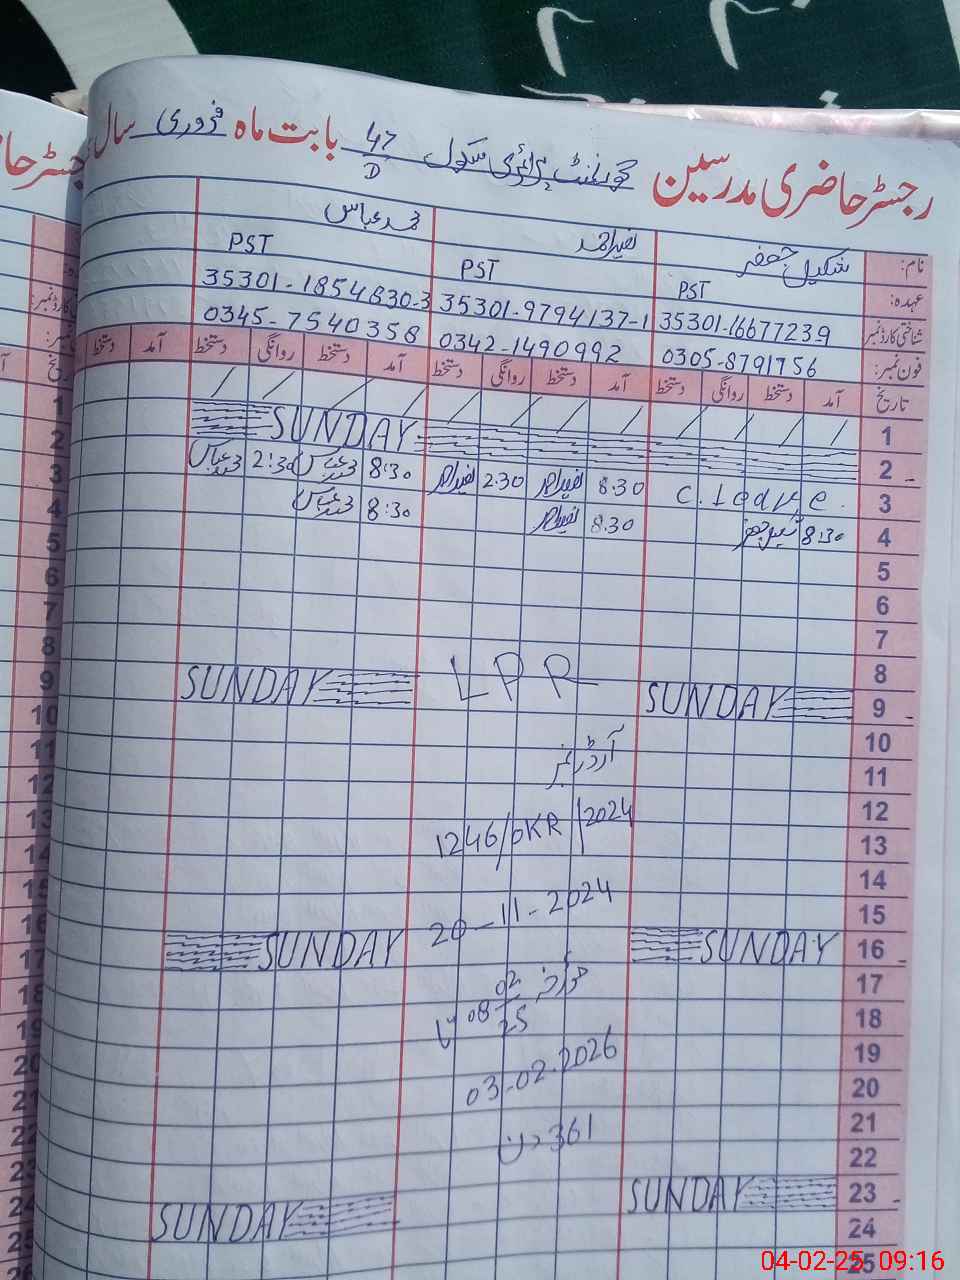 رجسٹر حاضری مدرسین گورنمنٹ پرائمری سکول 47/D بابت ماہ فروری سال
نام: شکیل جعفر نصیر احمد محمد عباس
عہدہ: PST PST PST
شناختی کارڈ نمبر: 35301-16677239 35301-9794137-1 35301-1854830-3
فون نمبر: 0305-8791756 0342-1490992 0345-7540358
تاریخ آمد دستخط روانگی دستخط آمد دستخط روانگی دستخط آمد دستخط روانگی دستخط آمد دستخط
1
2 SUNDAY
3 C.leave 8.30 نصیر احمد 2.30 نصیر احمد 8:30 محمد عباس 2:30 محمد عباس
4 8:30 شکیل جعفر 8.30 نصیر احمد 8:30 محمد عباس
5
6
7
8
9 SUNDAY LPR SUNDAY
10
11 آرڈر نمبر
12
13 1246/DKR/2024
14
15 20-11-2024
16 SUNDAY SUNDAY
17
18 مورخہ 08-02-25 تا
19
20 03-02-2026
21
22 361 دن
23 SUNDAY SUNDAY
24
25
04-02-25 09:16